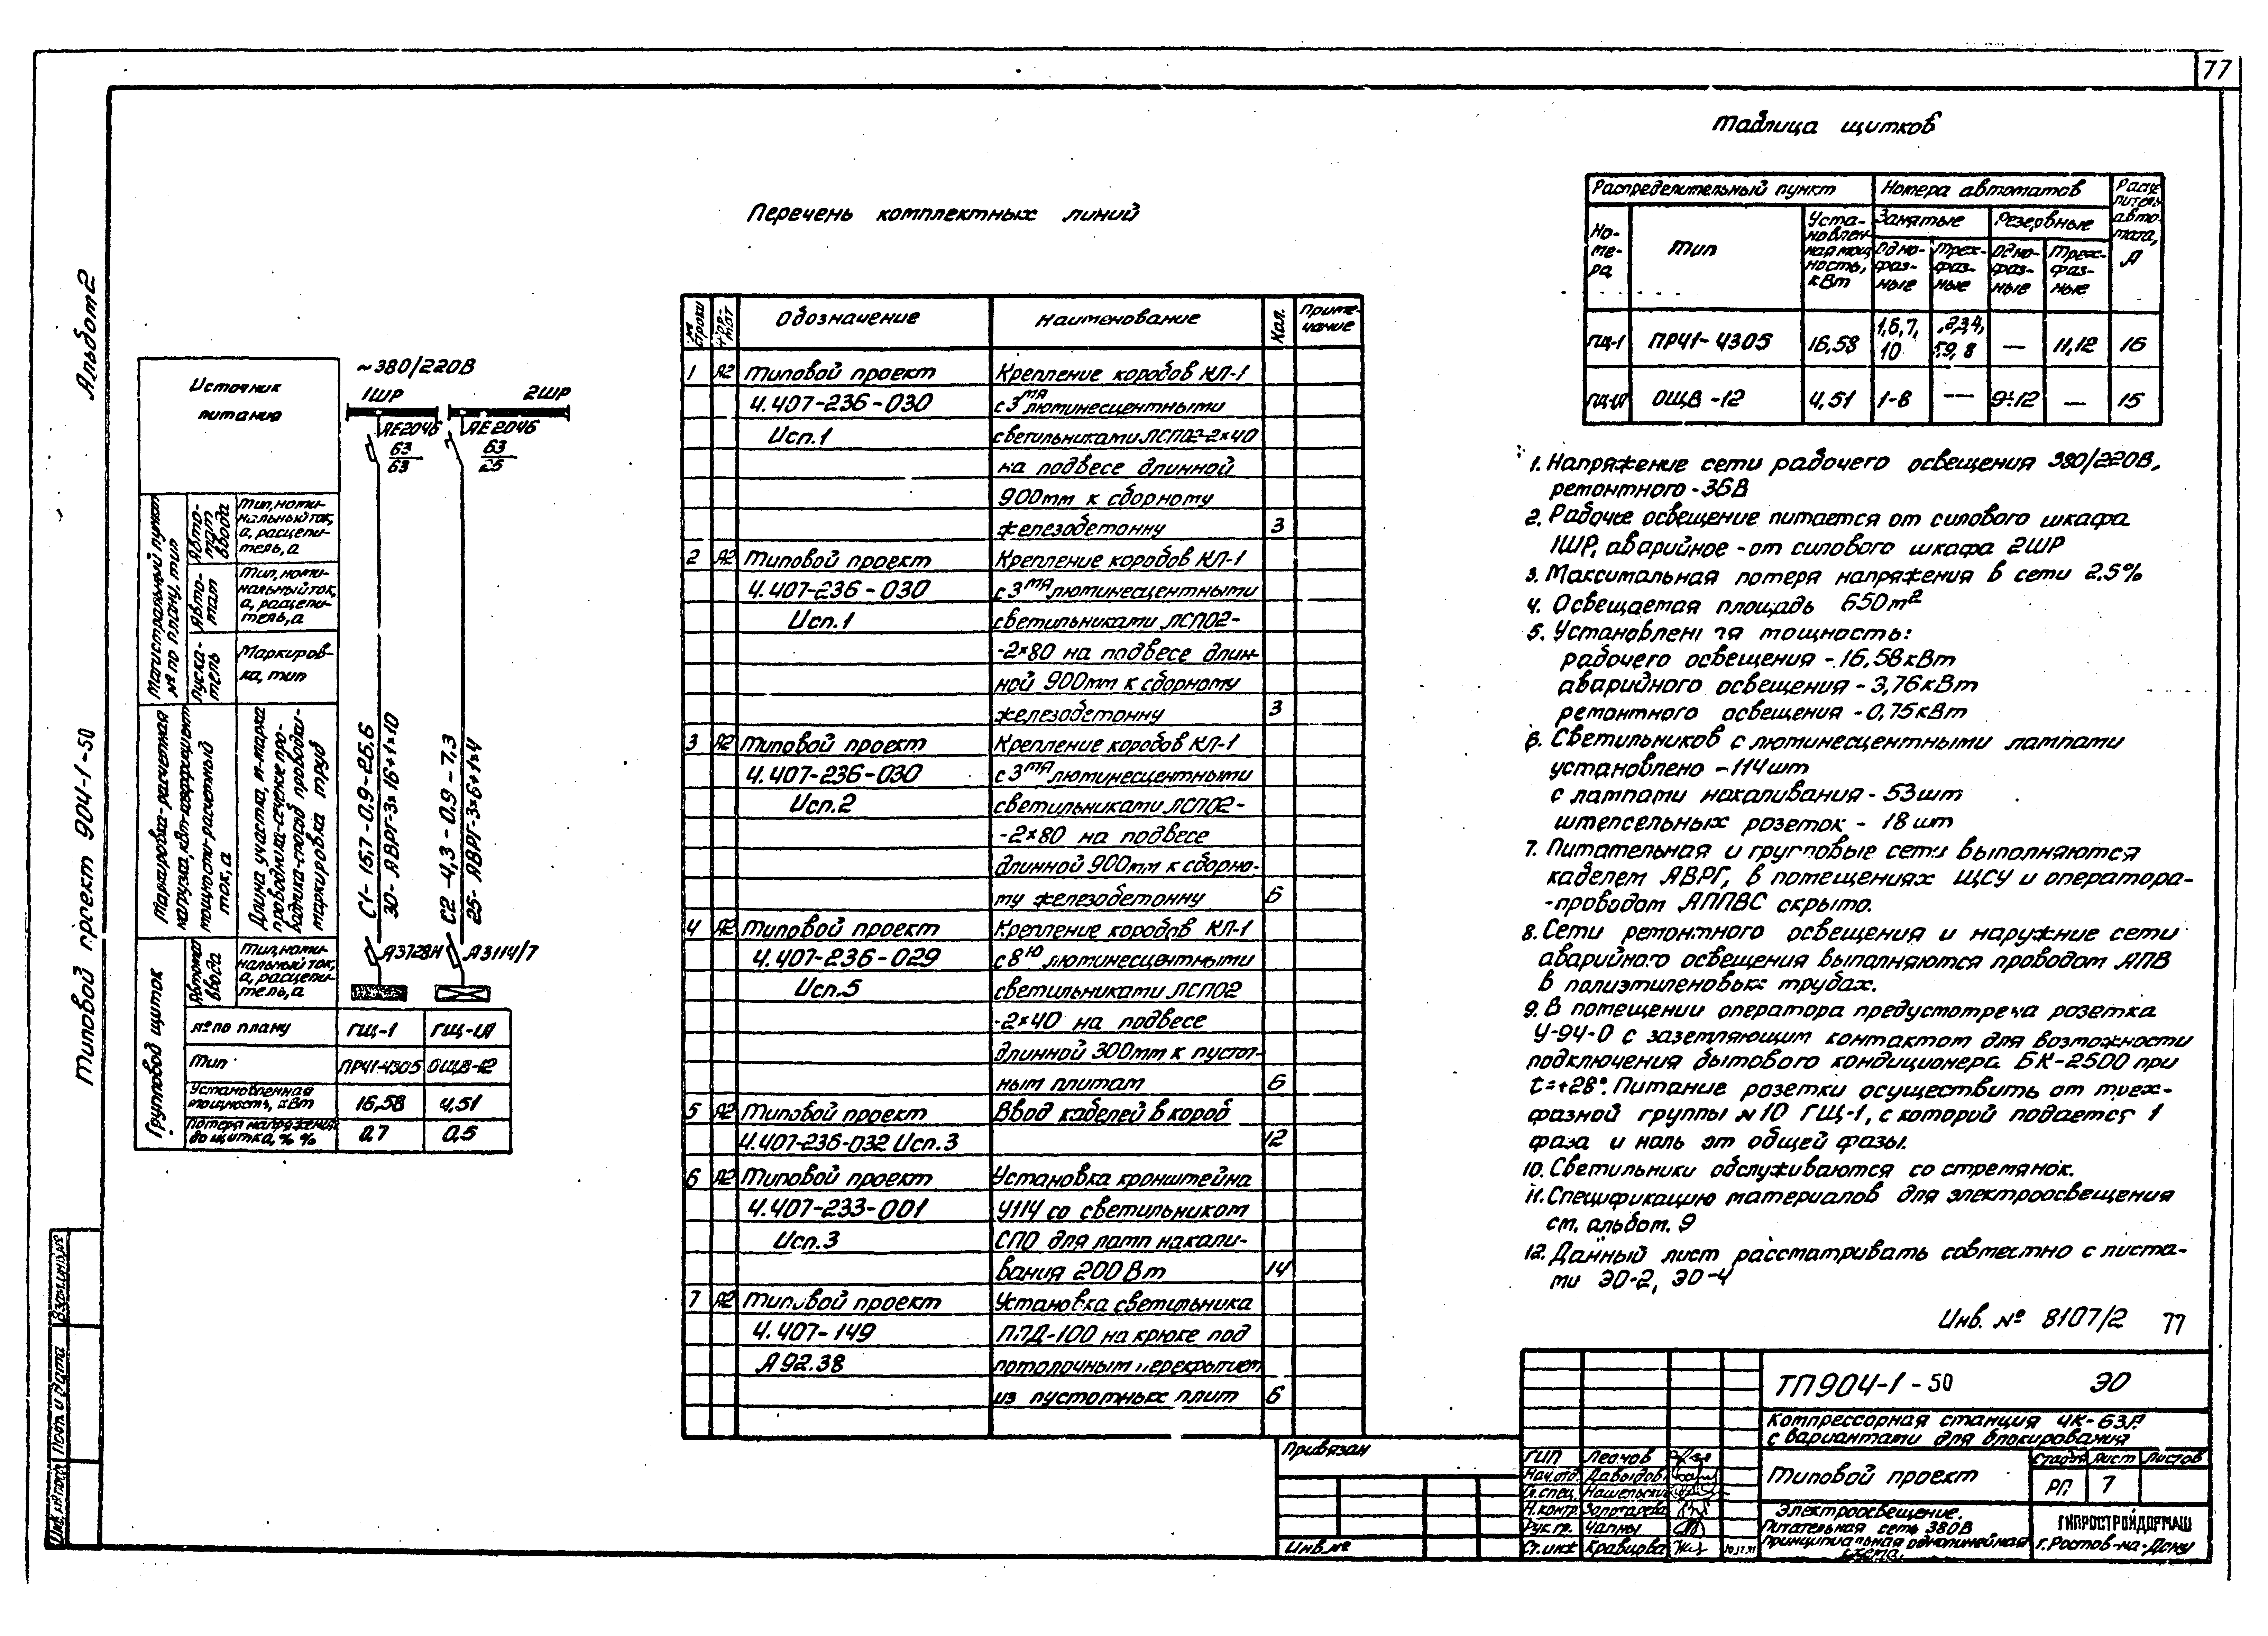 77
Альбом 2
Типовой проект 904-1-50
Источник
питания
Магистральный пункт
№ по плану, тип
Авто-
мат
ввода
Тип, номи-
нальный ток,
а, расцепи-
тель, а
Авто-
мат
Тип, номи-
нальный ток,
а, расцепи-
тель, а
Пуска-
тель
Маркиров-
ка, тип
Маркировка-расчетная
нагрузка, кВт-коэффициент
мощности-расчетный
ток, а
Длина участка, м-марка
проводника-сечение про-
водника-способ проводки-
маркировка труб
Групповой щиток
Автомат
ввода
Тип, номи-
нальный ток,
а, расцепи-
тель, а
№ по плану ГЩ-1 ГЩ-1А
Тип ПР41-4305 ОЩВ-12
Установленная
мощность, кВт 16,58 4,51
Потеря напряжения
до щитка, % % 0,7 0,5
~380/220В
1ШР 2ШР
АЕ2046 АЕ2046
63 63
63 25
С1- 15,7-0,9-26,6
30- АВРГ-3×16+1×10
С2-4,3-0,9-7,3
25- АВРГ-3×6+1×4
А3728Н А3114/7
Перечень комплектных линий
№ строки Формат Обозначение Наименование Кол. Приме-
чание
1 А2 Типовой проект Крепление коробов КЛ-1
4.407-236-030 с 3мя люминесцентными
Исп.1 светильниками ЛСП02-2×40
на подвесе длинной
900мм к сборному
железобетонну 3
2 А2 Типовой проект Крепление коробов КЛ-1
4.407-236-030 с 3мя люминесцентными
Исп.1 светильниками ЛСП02-
-2×80 на подвесе длин-
ной 900мм к сборному
железобетонну 3
3 А2 Типовой проект Крепление коробов КЛ-1
4.407-236-030 с 3мя люминесцентными
Исп.2 светильниками ЛСП02-
-2×80 на подвесе
длинной 900мм к сборно-
му железобетонну 6
4 А2 Типовой проект Крепление коробов КЛ-1
4.407-236-029 с 8ю люминесцентными
Исп.5 светильниками ЛСП02
-2×40 на подвесе
длинной 300мм к пустот-
ным плитам 6
5 А2 Типовой проект Ввод кабелей в короб
4.407-236-032 Исп.3 12
6 А2 Типовой проект Установка кронштейна
4.407-233-001 У114 со светильником
Исп.3 СПО для ламп накали-
вания 200 Вт 14
7 А2 Типовой проект Установка светильника
4.407-149 ППД-100 на крюке под
А92.38 потолочным перекрытием
из пустотных плит 6
Таблица щитков
Распределительный пункт Номера автоматов Расце-
питель
авто-
мата,
А
Но-
ме-
ра Тип Уста-
новлен-
ная мощ-
ность,
кВт Занятые Резервные
Одно-
фаз-
ные Трех-
фаз-
ные Одно-
фаз-
ные Трех-
фаз-
ные
ГЩ-1 ПР41-4305 16,58 1,6,7,
10 2,3,4,
5,9,8 — 11,12 16
ГЩ-1А ОЩВ-12 4,51 1-8 — 9÷12 — 15
1. Напряжение сети рабочего освещения 380/220В,
ремонтного-36В
2. Рабочее освещение питается от силового шкафа
1ШР, аварийное-от силового шкафа 2ШР
3. Максимальная потеря напряжения в сети 2,5%
4. Освещаемая площадь 650м²
5. Установленная мощность:
рабочего освещения - 16,58кВт
аварийного освещения - 3,76кВт
ремонтного освещения - 0,75кВт
6. Светильников с люминесцентными лампами
установлено - 114шт
с лампами накаливания - 53шт
штепсельных розеток - 18шт
7. Питательная и групповые сети выполняются
кабелем АВРГ, в помещениях ЩСУ и оператора-
-проводом АППВС скрыто.
8. Сети ремонтного освещения и наружние сети
аварийного освещения выполняются проводом АПВ
в полиэтиленовых трубах.
9. В помещении оператора предусмотрена розетка
У-94-0 с заземляющим контактом для возможности
подключения бытового кондиционера БК-2500 при
t=+28°. Питание розетки осуществить от трех-
фазной группы №10 ГЩ-1, с которой подается 1
фаза и ноль от общей фазы.
10. Светильники обслуживаются со стремянок.
11. Спецификацию материалов для электроосвещения
см. альбом. 9
12. Данный лист рассматривать совместно с листа-
ми ЭО-2, ЭО-4
Инв. № 8107/2 77
ТП904-1-50 ЭО
Компрессорная станция 4К-63А
с вариантами для блокирования
Типовой проект
Стадия Лист Листов
РП 7
Электроосвещение.
Питательная сеть 380В
Принципиальная однолинейная
схема.
ГИПРОСТРОЙДОРМАШ
г. Ростов-на-Дону
Привязан
Инв №
ГИП Леонов
Нач.отд. Давыдов
Гл.спец. Нашельский
Н.контр. Золотарева
Рук.гр. Чапны
Ст.инж Кравцова
Взам.инв.№
Подп. и дата
Инв. № подл.